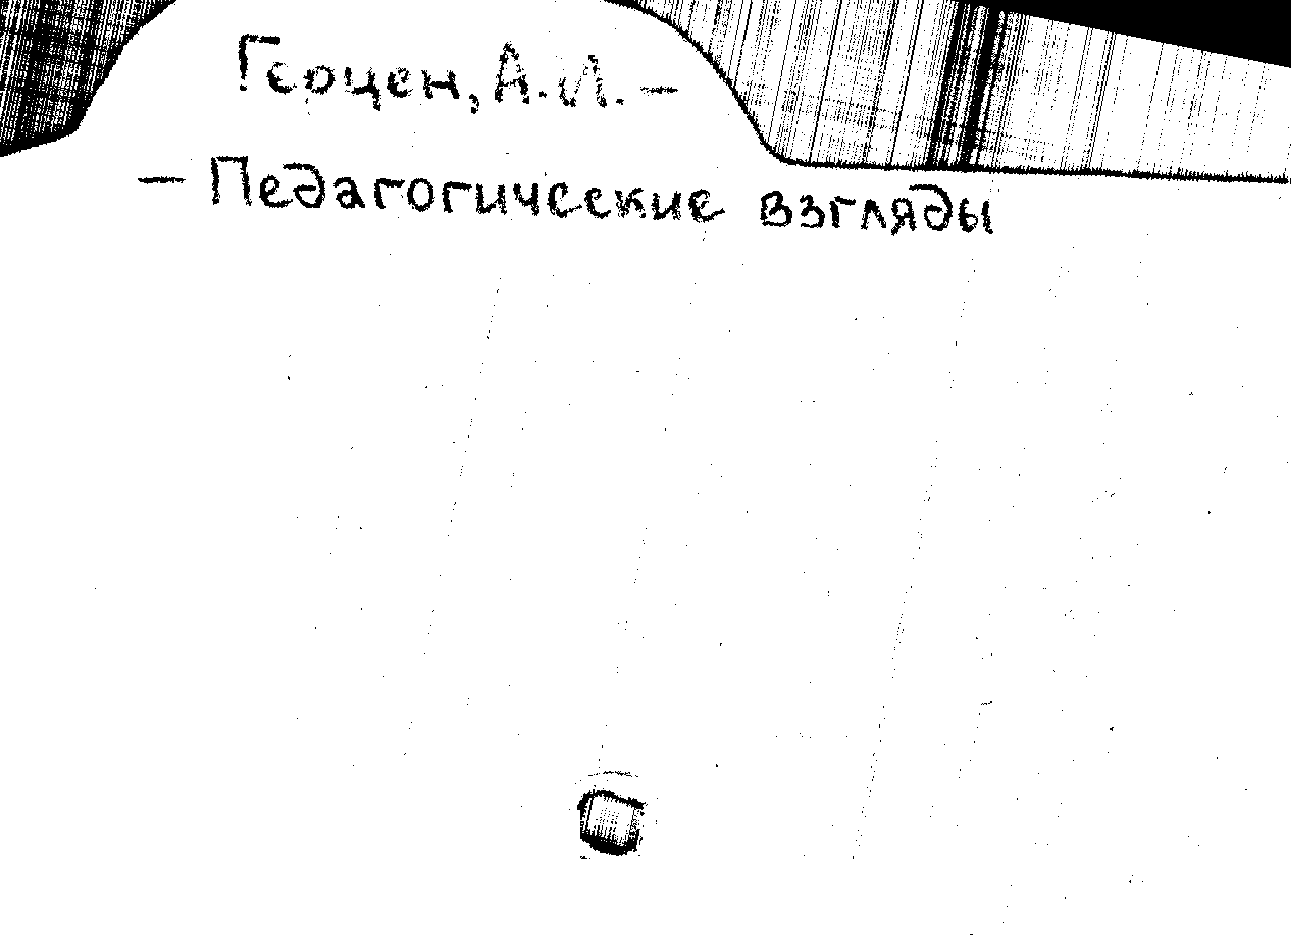 Герцен, А.И. –
– Педагогические взгляды